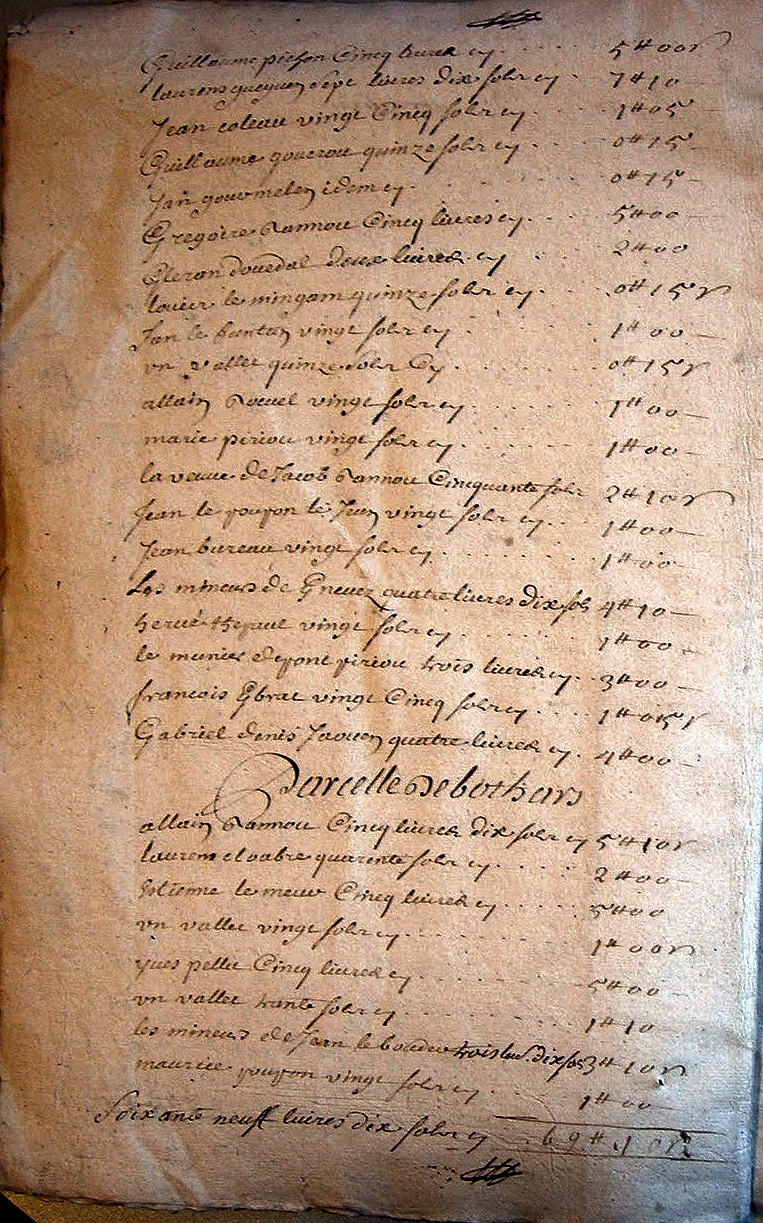 Guillaume pichon Cinq livres cy 5 # 00 s
laurens gueguen sept livres dix sols cy 7 # 10
Jean coleau vingt Cinq sols cy 1 # 05
Guillaume gouerou quinze sols cy 0 # 15
Jan gourmelen idem cy 0 # 15
Gregoire Rannou Cinq livres cy 5 # 00
douedal deux livres cy 2 # 00
le mingam quinze sols cy 0 # 15 s
Jan le vingt sols cy 1 # 00
vn vallet quinze sols Cy 0 # 15 s
allain vingt sols cy 1 # 00
marie piriou vingt sols cy 1 # 00
la veuue de Jacob Rannou Cinquante sols 2 # 10 s
Jean le poupon le Jeun vingt sols cy 1 # 00
Jean bureau vingt sols cy 1 # 00
Les mineurs de quatre livres dix sols 4 # 10
herué vingt sols cy 1 # 00
le munier de pont piriou trois livres cy 3 # 00
francois vingt Cinq sols cy 1 # 05 s
Gabriel denis Jaouen quatre livres cy 4 # 00
Parcelle De bothars
allain Rannou Cinq livres dix sols cy 5 # 10 s
laurens quarente sols cy 2 # 00
Estienne le meur Cinq livres cy 5 # 00
vn vallet vingt sols cy 1 # 00 s
yues pellé Cinq livres cy 5 # 00
vn vallet trante sols cy 1 # 10
les mineurs de Jean le trois liu. dix sols 3 # 10 s
maurice poupon vingt sols cy 1 # 00
Soixante neuff livres dix sols cy 69 # 10 s